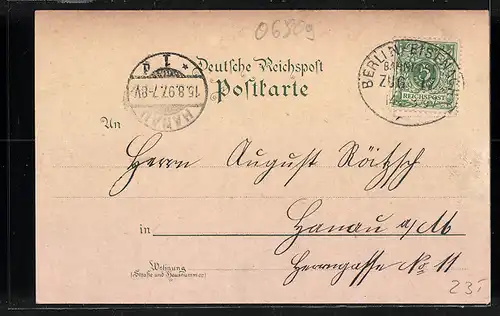 06509
Deutsche Reichspost
Postkarte
HANAU
15.8.97.7-8V.
* 1 d
BERLIN-EISENA
BAHNPOST
ZUG 17
REICHSPOST
5
An
Herrn August Röitzsch
in Hanau a/M
Herrngasse No 11
Wohnung
(Straße und Hausnummer)